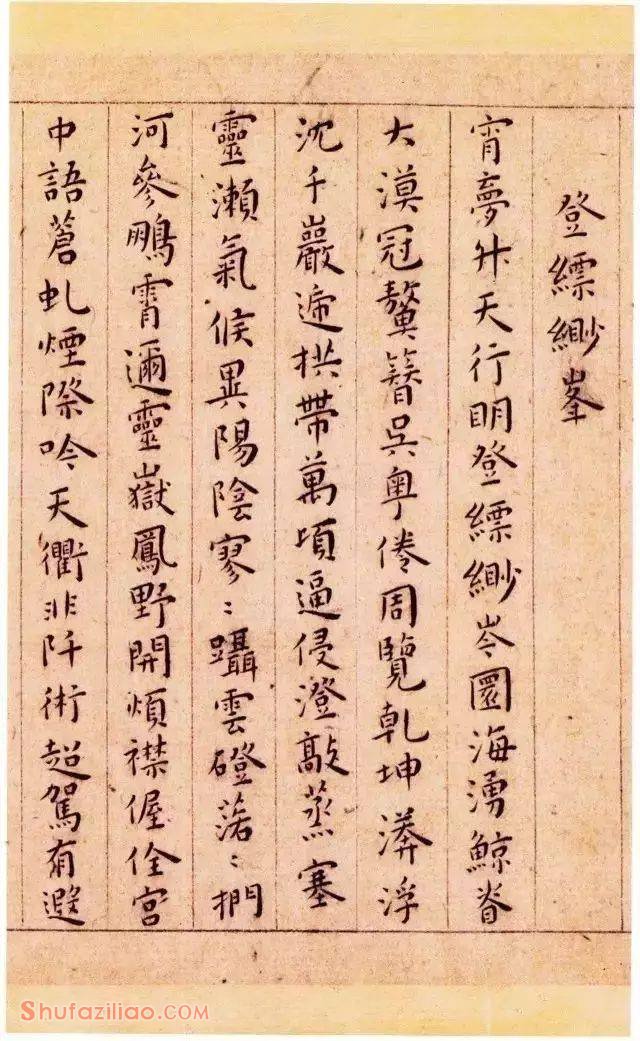 登縹緲峯
宵夢升天行明登縹緲岑圜海湧鯨脊
大漠冠鼇簪吳粵倦周覽乾坤漭浮
沈千巖遞拱帶萬頃逼侵澄歊蒸塞
靈瀨氣候異陽陰寥〻躡雲磴落〻捫
河參鵬霄邇靈嶽鳳野開煩襟偓佺宮
中語蒼虬煙際吟天衢非阡術超駕有遐
Shufaziliao.com